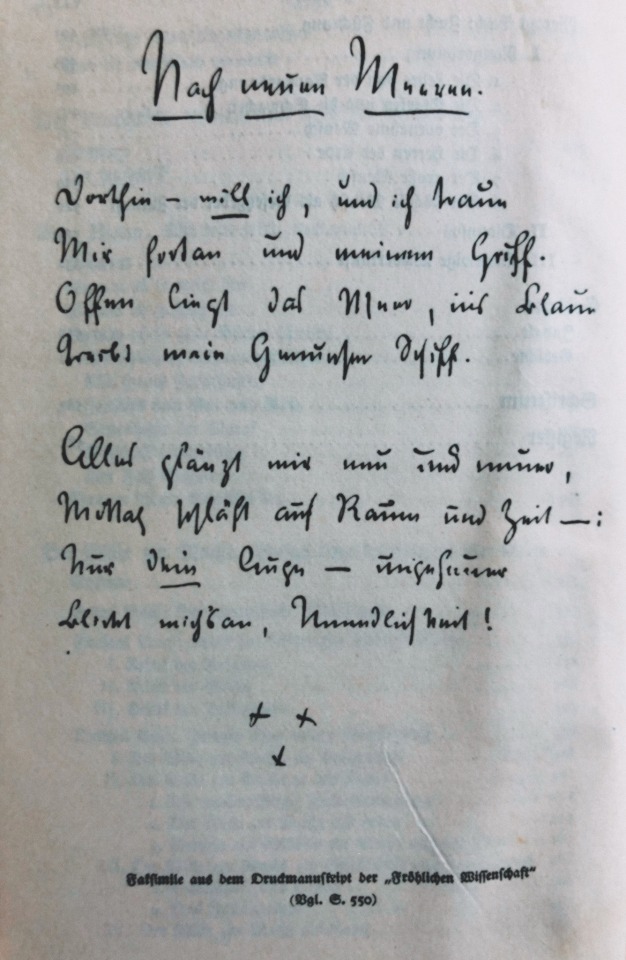 Nach neuen Meeren.
Dorthin – will ich, und ich traue
Mir fortan und meinem Griff.
Offen liegt das Meer, ins Blaue
Treibt mein Genueser Schiff.
Alles glänzt mir neu und neuer,
Mittag schläft auf Raum und Zeit —:
Nur dein Auge — ungeheuer
Blickt mich's an, Unendlichkeit!
Faksimile aus dem Druckmanuskript der „Fröhlichen Wissenschaft“
(Vgl. S. 550)